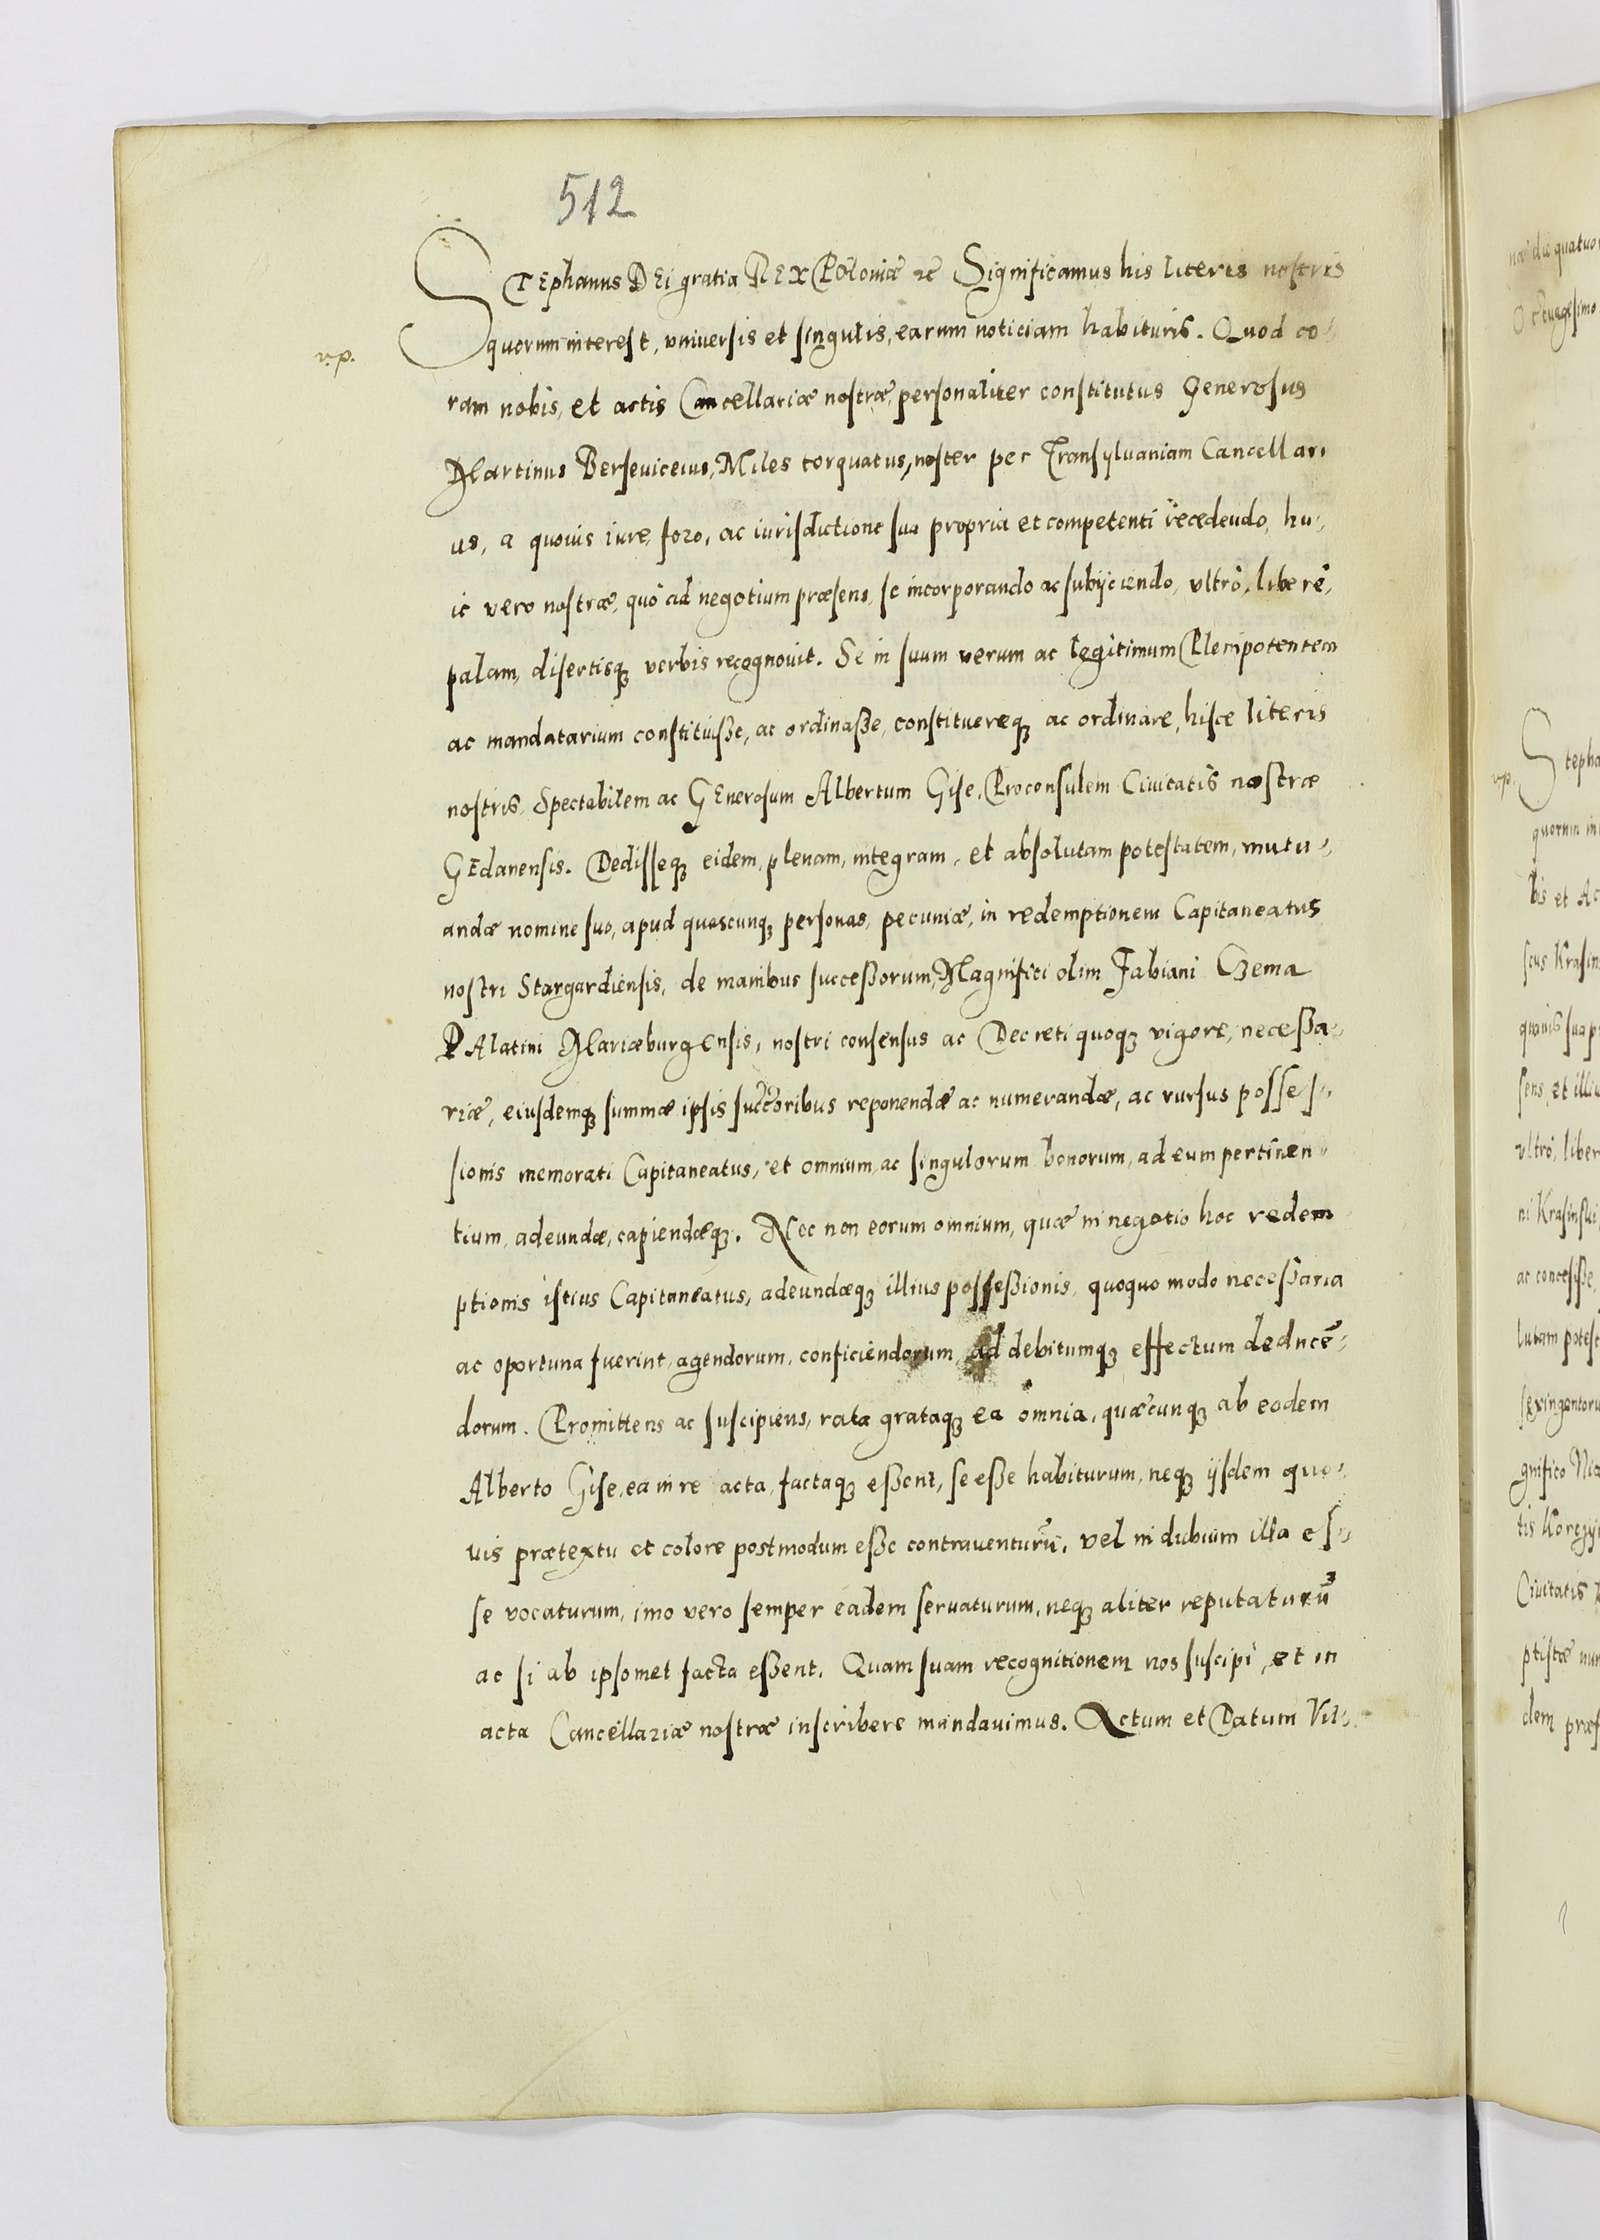 512
STEphanus DEi gratia REX Poloniæ &c Significamus his literis nostris
v.p.
quorum interest, vniuersis et singulis, earum noticiam habituris. Quod co-
ram nobis, et actis Cancellariæ nostræ, personaliter constitutus Generosus
Martinus Berseuiceius, Miles torquatus, noster per Transyluaniam Cancellari
us, a quouis iure, foro, ac iurisdictione sua propria et competenti recedendo, hu-
ic vero nostræ, quò ad negotium præsens, se incorporando ac subijciendo, vltrò, liberè,
palam, disertisq; verbis recognouit. Se in suum verum ac legitimum Plenipotentem
ac mandatarium constituisse, ac ordinasse, constituereq; ac ordinare, hisce literis
nostris, Spectabilem ac GEnerosum Albertum Gise, Proconsulem Ciuitatis nostræ
GEdanensis. Dedisseq; eidem, plenam, integram, et absolutam potestatem, mutu-
andæ nomine suo, apud quascunq; personas, pecuniæ, in redemptionem Capitaneatus
nostri Stargardiensis, de manibus successorum, Magnifici olim Fabiani Czema
PAlatini Mariæburgensis, nostri consensus ac Decreti quoq; vigore, necessa-
riæ, eiusdemq; summæ ipsis succoribus reponendæ ac numerandæ, ac rursus posses-
sionis memorati Capitaneatus, et omnium, ac singulorum bonorum, ad eum pertinen-
tium, adeundæ, capiendæq;. Nec non eorum omnium, quæ in negotio hoc redem
ptionis istius Capitaneatus, adeundæq; illius possessionis, quoquo modo necessaria
ac oportuna fuerint, agendorum, conficiendorum, ad debitumq; effectum deducē-
dorum. Promittens ac suscipiens, rata grataq; ea omnia, quæcunq; ab eodem
Alberto Gise, ea in re acta, factaq; essent, se esse habiturum, neq; ijsdem quo-
uis prætextu et colore postmodum esse contrauenturū, vel in dubium illa es-
se vocaturum, imo vero semper eadem seruaturum, neq; aliter reputaturū
ac si ab ipsomet facta essent. Quam suam recognitionem nos suscipi, et in
acta Cancellariæ nostræ inscribere mandauimus. Actum et Datum Vil-
næ die quatuor
Octuagesimo
v.p.
Stepha
quorum in
bis et Ac
scus Krasin
quouis sua pr
sens, et illiu
vltrò, liber
ni Krasinski
ac concessisse,
lutam potest
sexingentoru
gnifico Nic
Ciuitatis
ptistæ nun
dem præf